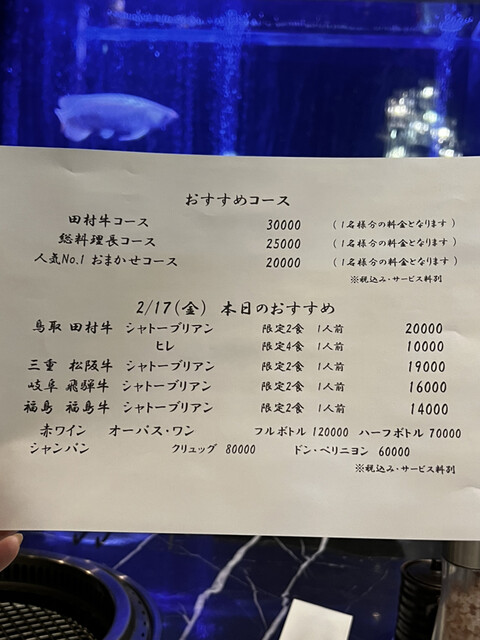 おすすめコース
田村牛コース 30000 (1名様分の料金となります)
総料理長コース 25000 (1名様分の料金となります)
人気No.1 おまかせコース 20000 (1名様分の料金となります)
※税込み・サービス料別
2/17(金) 本日のおすすめ
鳥取 田村牛 シャトーブリアン 限定2食 1人前 20000
ヒレ 限定4食 1人前 10000
三重 松阪牛 シャトーブリアン 限定2食 1人前 19000
岐阜 飛騨牛 シャトーブリアン 限定2食 1人前 16000
福島 福島牛 シャトーブリアン 限定2食 1人前 14000
赤ワイン オーパス・ワン フルボトル 120000 ハーフボトル 70000
シャンパン クリュッグ 80000 ドン・ペリニヨン 60000
※税込み・サービス料別